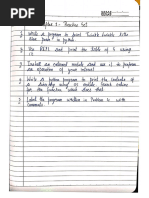 Chapter 1 - Practice Set
1. Write a program to print Twinkle twinkle little
star poem in python.
2. Use REPL and print the table of 5 using
it.
3. Install an external module and use it to perform
an operation of your interest.
4. Write a python program to print the contents of
a directory using os module. Search online
for the function which does that.
5. Label the program written in Problem 4 with
comments.